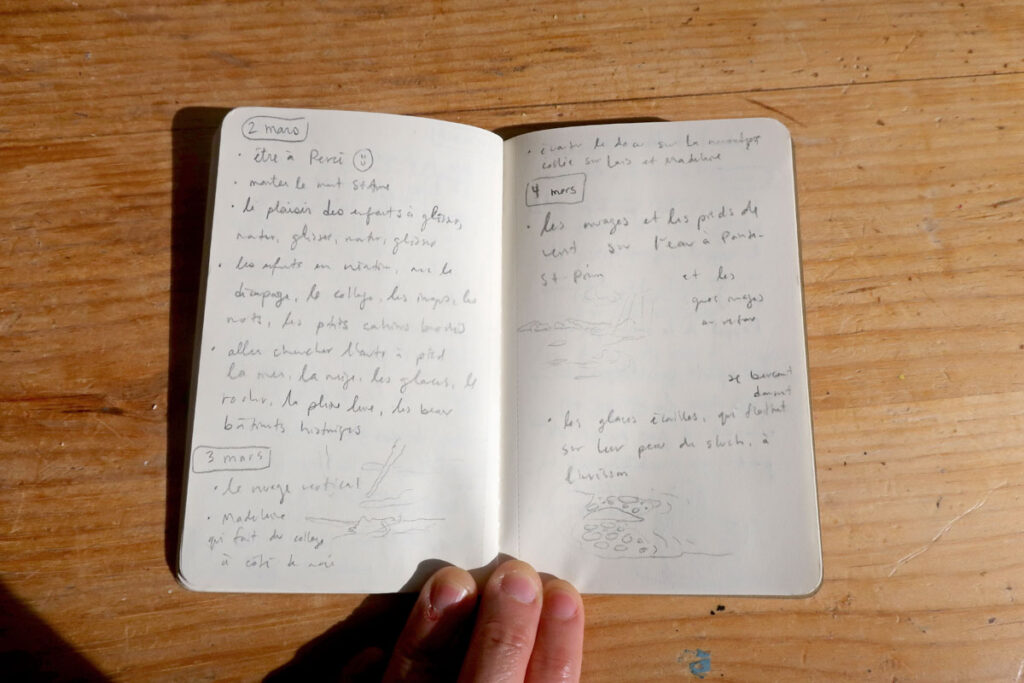 2 mars
• être à Percé
• monter le mont Ste-Anne
• le plaisir des enfants à glisser,
monter, glisser, monter, glisser
• les enfants en création, avec le
découpage, le collage, les images, les
mots, les petits cahiers
• aller chercher l'auto à pied
la mer, la neige, les glaces, le
rocher, la pleine lune, les beaux
bâtiments historiques
3 mars
• le nuage vertical
• Madeleine
qui fait du collage
à côté de moi
• le dos sur la
collée sur Laïs et Madeleine
4 mars
• les nuages et les pieds de
vent sur l'eau à Pointe-
St-
et les
quais nuages
se berçant
devant
• les glaces écailles, qui flottent
sur leur peau de sloch, à
l'unisson